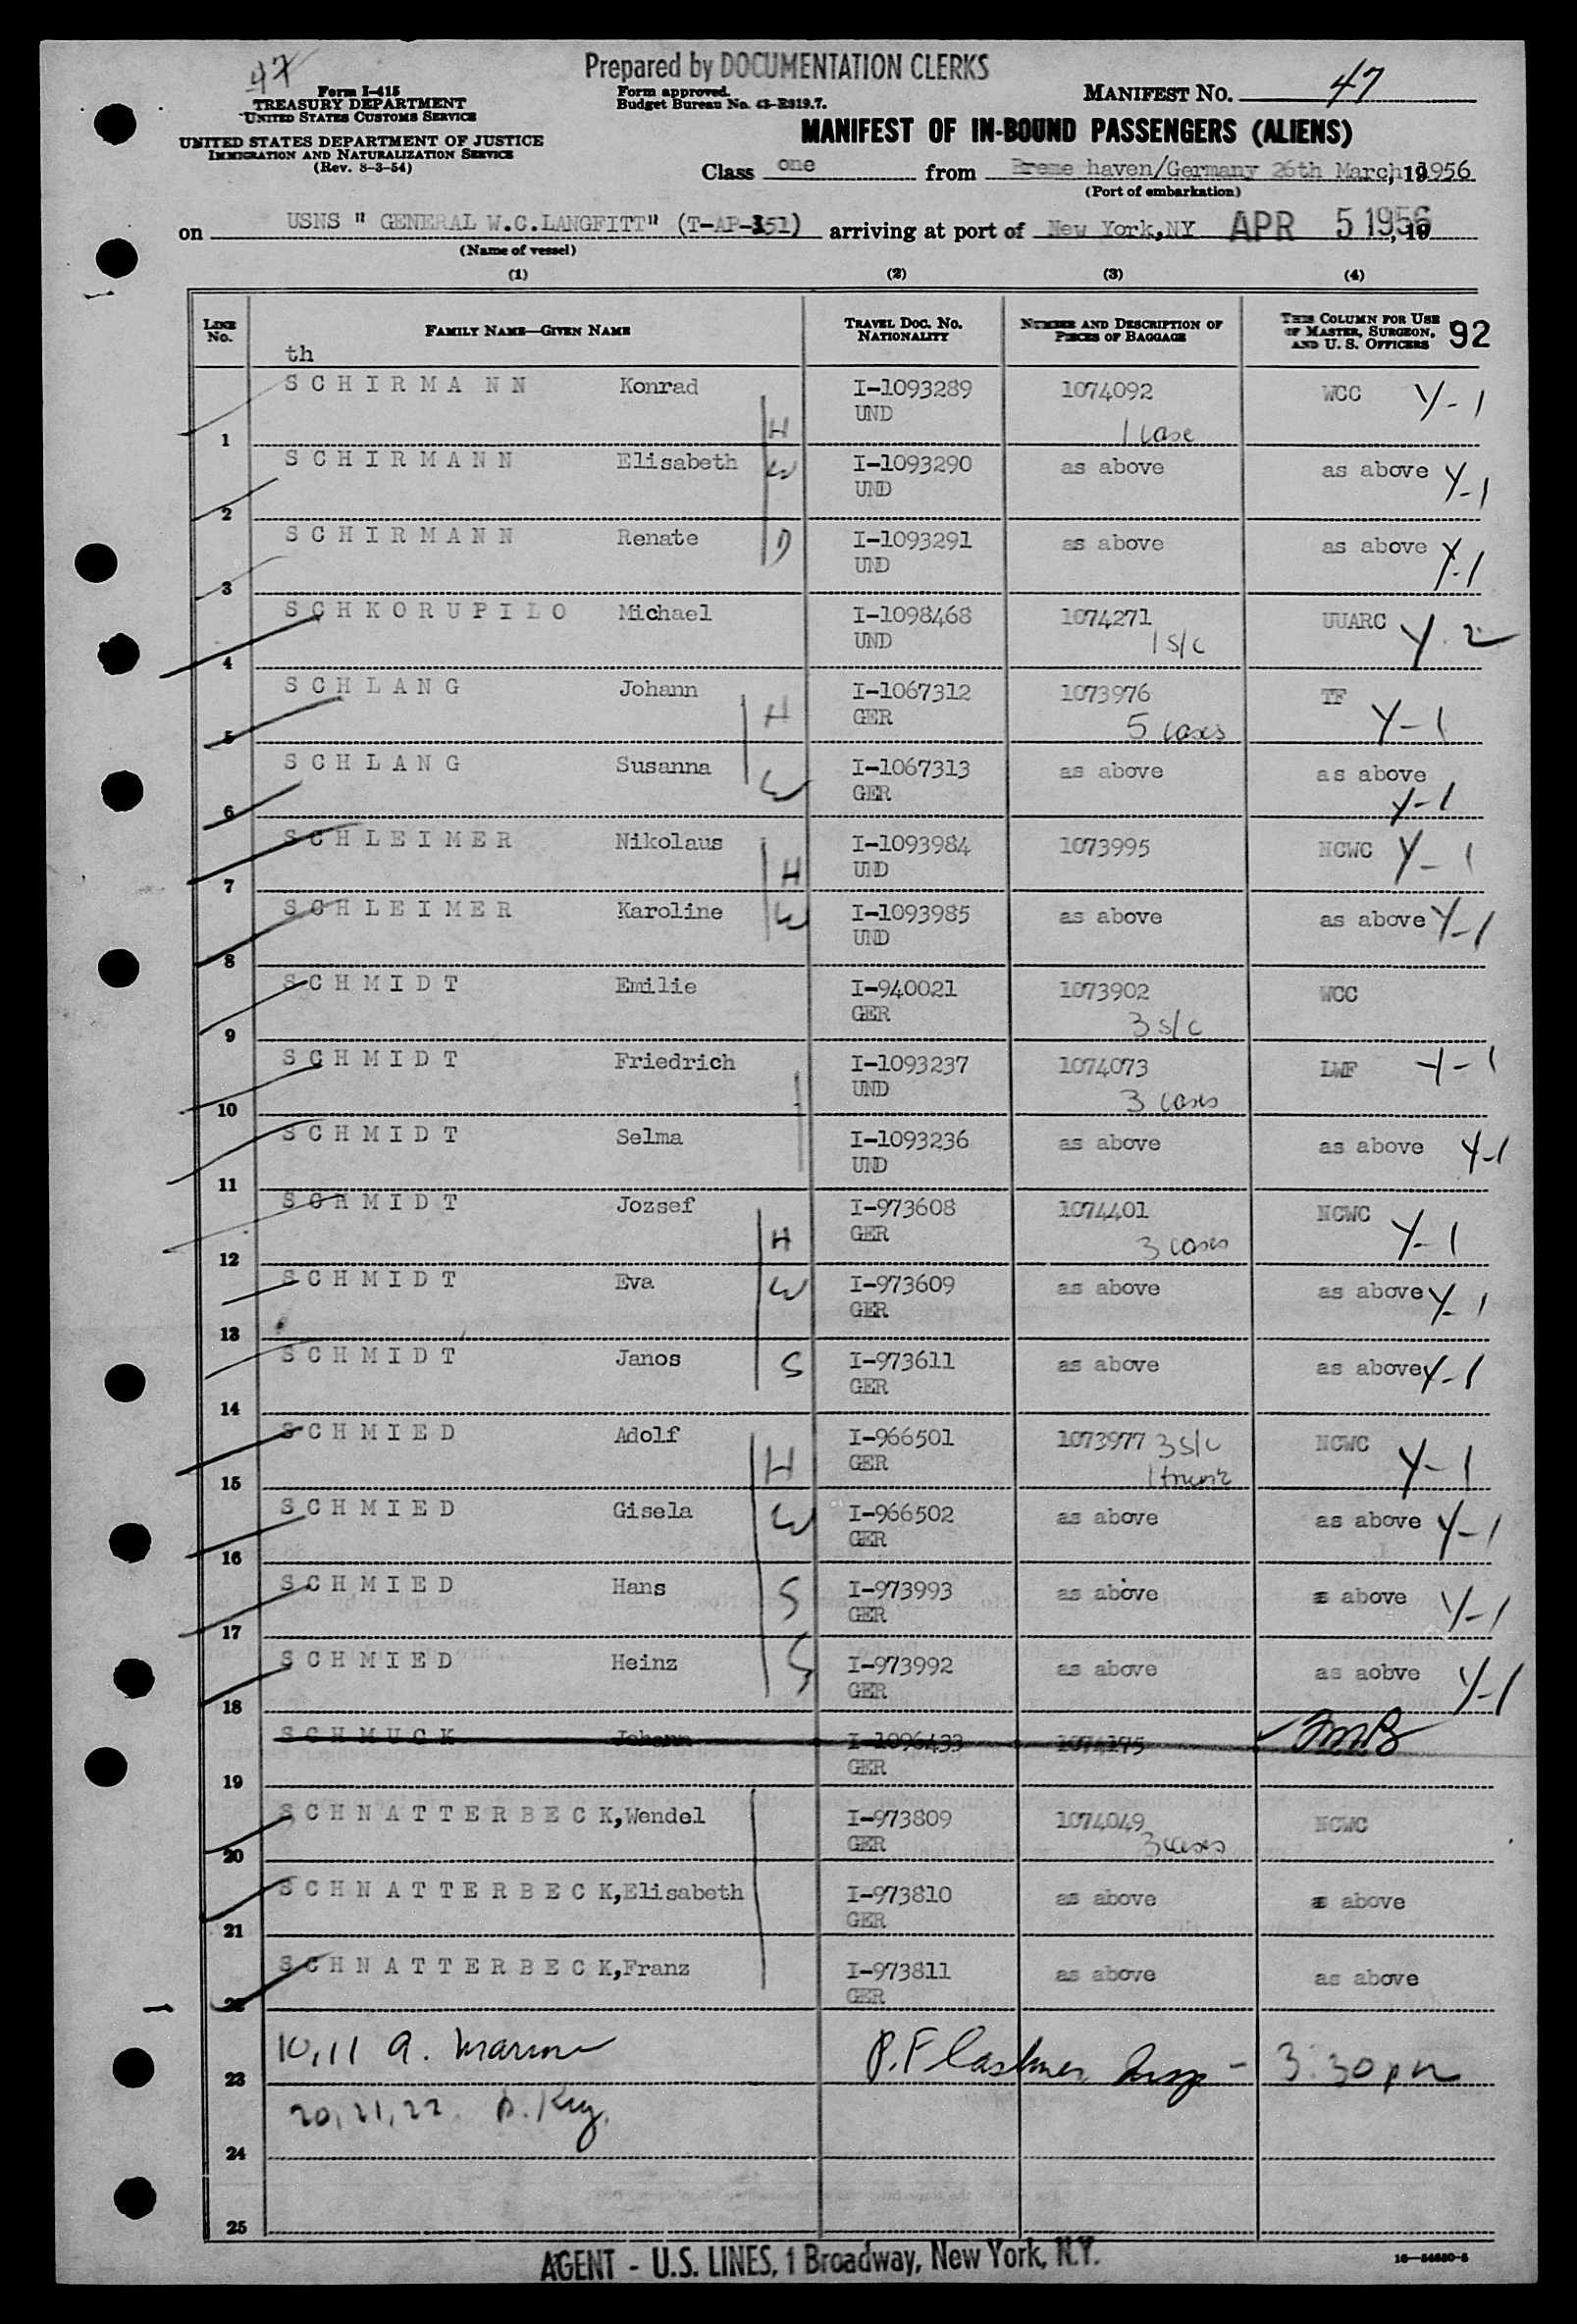 47
Prepared by DOCUMENTATION CLERKS
Form I-415
TREASURY DEPARTMENT
UNITED STATES CUSTOMS SERVICE
UNITED STATES DEPARTMENT OF JUSTICE
IMMIGRATION AND NATURALIZATION SERVICE
(Rev. 8-3-54)
Form approved.
Budget Bureau No. 43-R319.7.
MANIFEST NO. 47
MANIFEST OF IN-BOUND PASSENGERS (ALIENS)
Class one from Breme haven/Germany 26th March, 19 1956
(Port of embarkation)
on USNS " GENERAL W.C.LANGFITT" (T-AP-151) arriving at port of New York,NY APR 5 1956, 19
(Name of vessel)
(1) (2) (3) (4)
LINE No. FAMILY NAME—GIVEN NAME TRAVEL DOC. NO. NATIONALITY NUMBER AND DESCRIPTION OF PIECES OF BAGGAGE THIS COLUMN FOR USE OF MASTER, SURGEON, AND U. S. OFFICERS 92
th
SCHIRMANN Konrad I-1093289 1074092 WCC Y-1
1 H UND 1 case
SCHIRMANN Elisabeth W I-1093290 as above as above Y-1
2 UND
SCHIRMANN Renate D I-1093291 as above as above Y-1
3 UND
SCHKORUPILO Michael I-1098468 1074271 UUARC Y.2
4 UND 1 s/c
SCHLANG Johann H I-1067312 1073976 TF Y-1
5 GER 5 cases
SCHLANG Susanna W I-1067313 as above as above
6 GER Y-1
SCHLEIMER Nikolaus I-1093984 1073995 NCWC Y-1
7 H UND
SCHLEIMER Karoline W I-1093985 as above as above Y-1
8 UND
SCHMIDT Emilie I-940021 1073902 WCC
9 GER 3 s/c
SCHMIDT Friedrich I-1093237 1074073 LWF Y-1
10 UND 3 cases
SCHMIDT Selma I-1093236 as above as above Y-1
11 UND
SCHMIDT Jozsef I-973608 1074401 NCWC Y-1
12 H GER 3 cases
SCHMIDT Eva W I-973609 as above as above Y-1
13 GER
SCHMIDT Janos S I-973611 as above as above Y-1
14 GER
SCHMIED Adolf I-966501 1073977 3 s/c NCWC Y-1
15 H GER 1 trunk
SCHMIED Gisela W I-966502 as above as above Y-1
16 GER
SCHMIED Hans S I-973993 as above s above Y-1
17 GER
SCHMIED Heinz S I-973992 as above as aobve Y-1
18 GER
SCHMUCK Johann I-1096433 1074175
19 GER
SCHNATTERBECK,Wendel I-973809 1074049 NCWC
20 GER 3 cases
SCHNATTERBECK,Elisabeth I-973810 as above s above
21 GER
SCHNATTERBECK,Franz I-973811 as above as above
22 GER
10,11 a.
23 P.F Insp - 3:30 pm
20,21,22
24
25
AGENT - U.S. LINES, 1 Broadway, New York, N.Y.